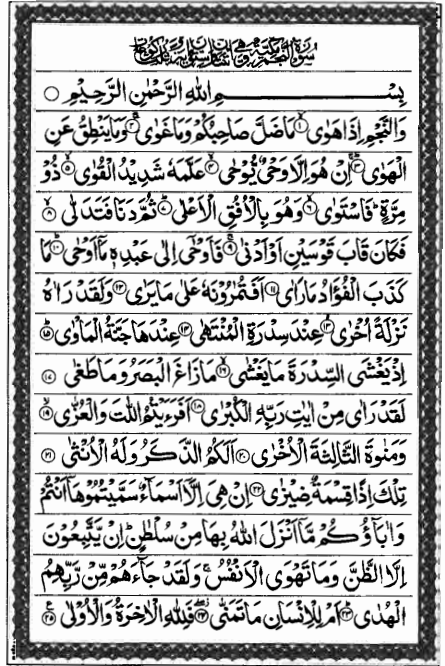 سورة النجم مكية وهي اثنتان وستون اية وثلث ركوعات
بِسْمِ اللهِ الرَّحْمٰنِ الرَّحِيْمِ
وَالنَّجْمِ اِذَا هَوٰى ۝۱ مَا ضَلَّ صَاحِبُكُمْ وَمَا غَوٰى ۝۲ وَمَا يَنْطِقُ عَنِ
الْهَوٰى ۝۳ اِنْ هُوَ اِلَّا وَحْيٌ يُّوْحٰى ۝۴ عَلَّمَهٗ شَدِيْدُ الْقُوٰى ۝۵ ذُوْ
مِرَّةٍ ؕ فَاسْتَوٰى ۝۶ وَهُوَ بِالْاُفُقِ الْاَعْلٰى ۝۷ ثُمَّ دَنَا فَتَدَلّٰى ۝۸
فَكَانَ قَابَ قَوْسَيْنِ اَوْ اَدْنٰى ۝۹ فَاَوْحٰى اِلٰى عَبْدِهٖ مَاۤ اَوْحٰى ۝۱۰ مَا
كَذَبَ الْفُؤَادُ مَا رَاٰى ۝۱۱ اَفَتُمٰرُوْنَهٗ عَلٰى مَا يَرٰى ۝۱۲ وَلَقَدْ رَاٰهُ
نَزْلَةً اُخْرٰى ۝۱۳ عِنْدَ سِدْرَةِ الْمُنْتَهٰى ۝۱۴ عِنْدَهَا جَنَّةُ الْمَاْوٰى ۝۱۵
اِذْ يَغْشَى السِّدْرَةَ مَا يَغْشٰى ۝۱۶ مَا زَاغَ الْبَصَرُ وَمَا طَغٰى ۝۱۷
لَقَدْ رَاٰى مِنْ اٰيٰتِ رَبِّهِ الْكُبْرٰى ۝۱۸ اَفَرَءَيْتُمُ اللّٰتَ وَالْعُزّٰى ۝۱۹
وَمَنٰوةَ الثَّالِثَةَ الْاُخْرٰى ۝۲۰ اَلَكُمُ الذَّكَرُ وَلَهُ الْاُنْثٰى ۝۲۱
تِلْكَ اِذًا قِسْمَةٌ ضِيْزٰى ۝۲۲ اِنْ هِيَ اِلَّاۤ اَسْمَآءٌ سَمَّيْتُمُوْهَاۤ اَنْتُمْ
وَاٰبَآؤُكُمْ مَّاۤ اَنْزَلَ اللهُ بِهَا مِنْ سُلْطٰنٍ ؕ اِنْ يَّتَّبِعُوْنَ
اِلَّا الظَّنَّ وَمَا تَهْوَى الْاَنْفُسُ ۚ وَلَقَدْ جَآءَهُمْ مِّنْ رَّبِّهِمُ
الْهُدٰى ۝۲۳ اَمْ لِلْاِنْسَانِ مَا تَمَنّٰى ۝۲۴ فَلِلّٰهِ الْاٰخِرَةُ وَالْاُوْلٰى ۝۲۵